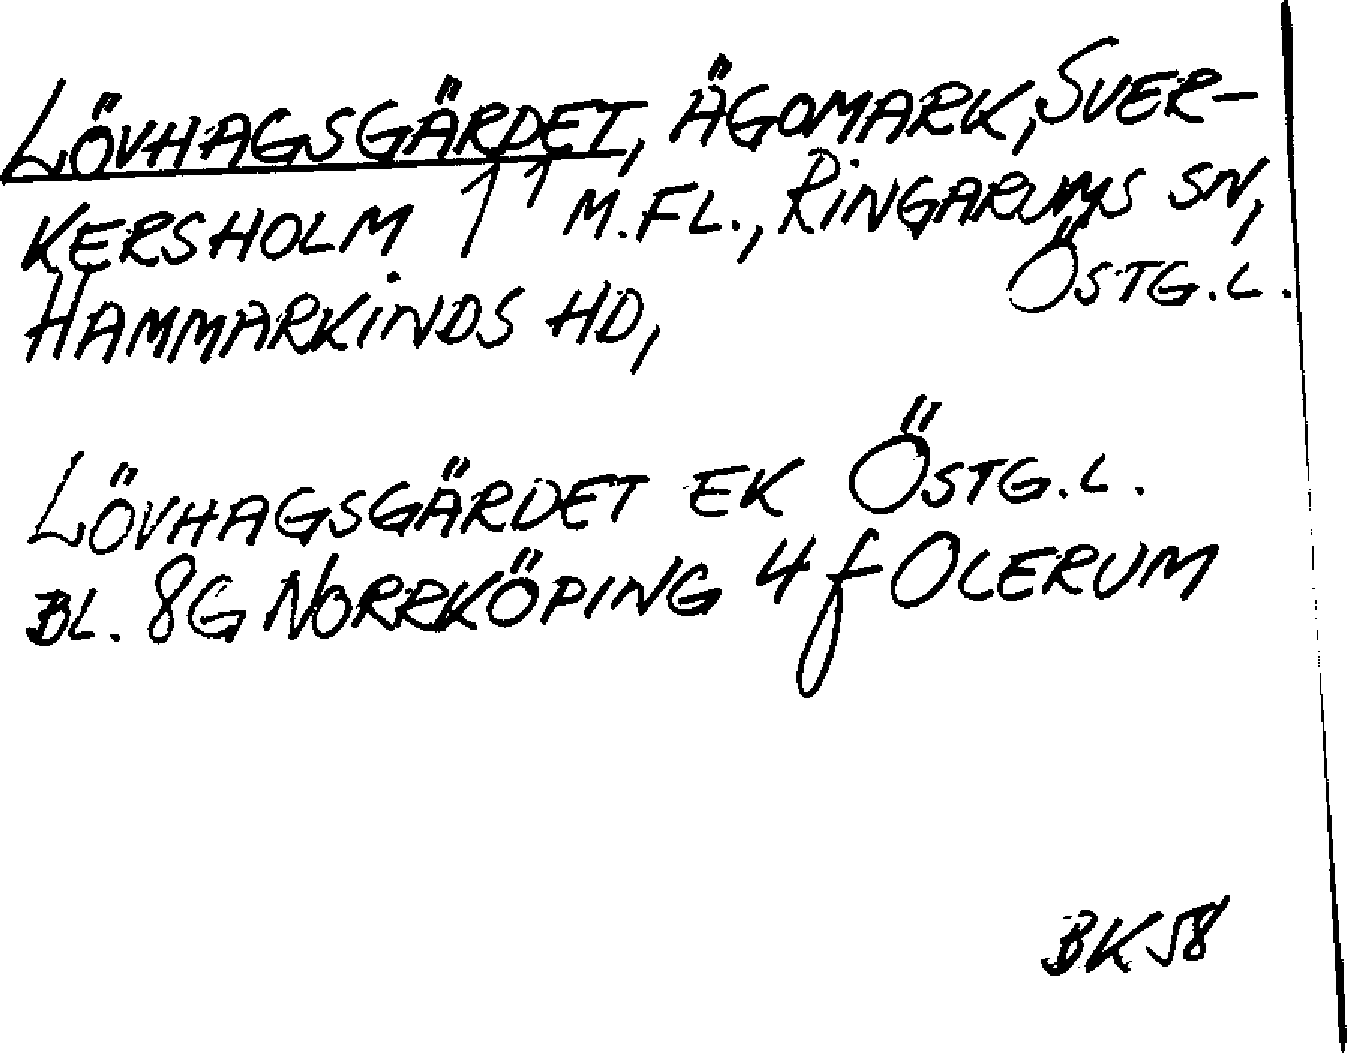 LÖVHAGSGÄRDET, ÄGOMARK, SVER-
KERSHOLM 1¹ M.FL., RINGARUMS SN,
HAMMARKINDS HD, ÖSTG.L.
LÖVHAGSGÄRDET EK ÖSTG.L.
BL. 8G NORRKÖPING 4 f OLERUM
BK58